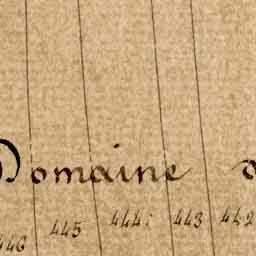 Domaine
446 445 444 443 442